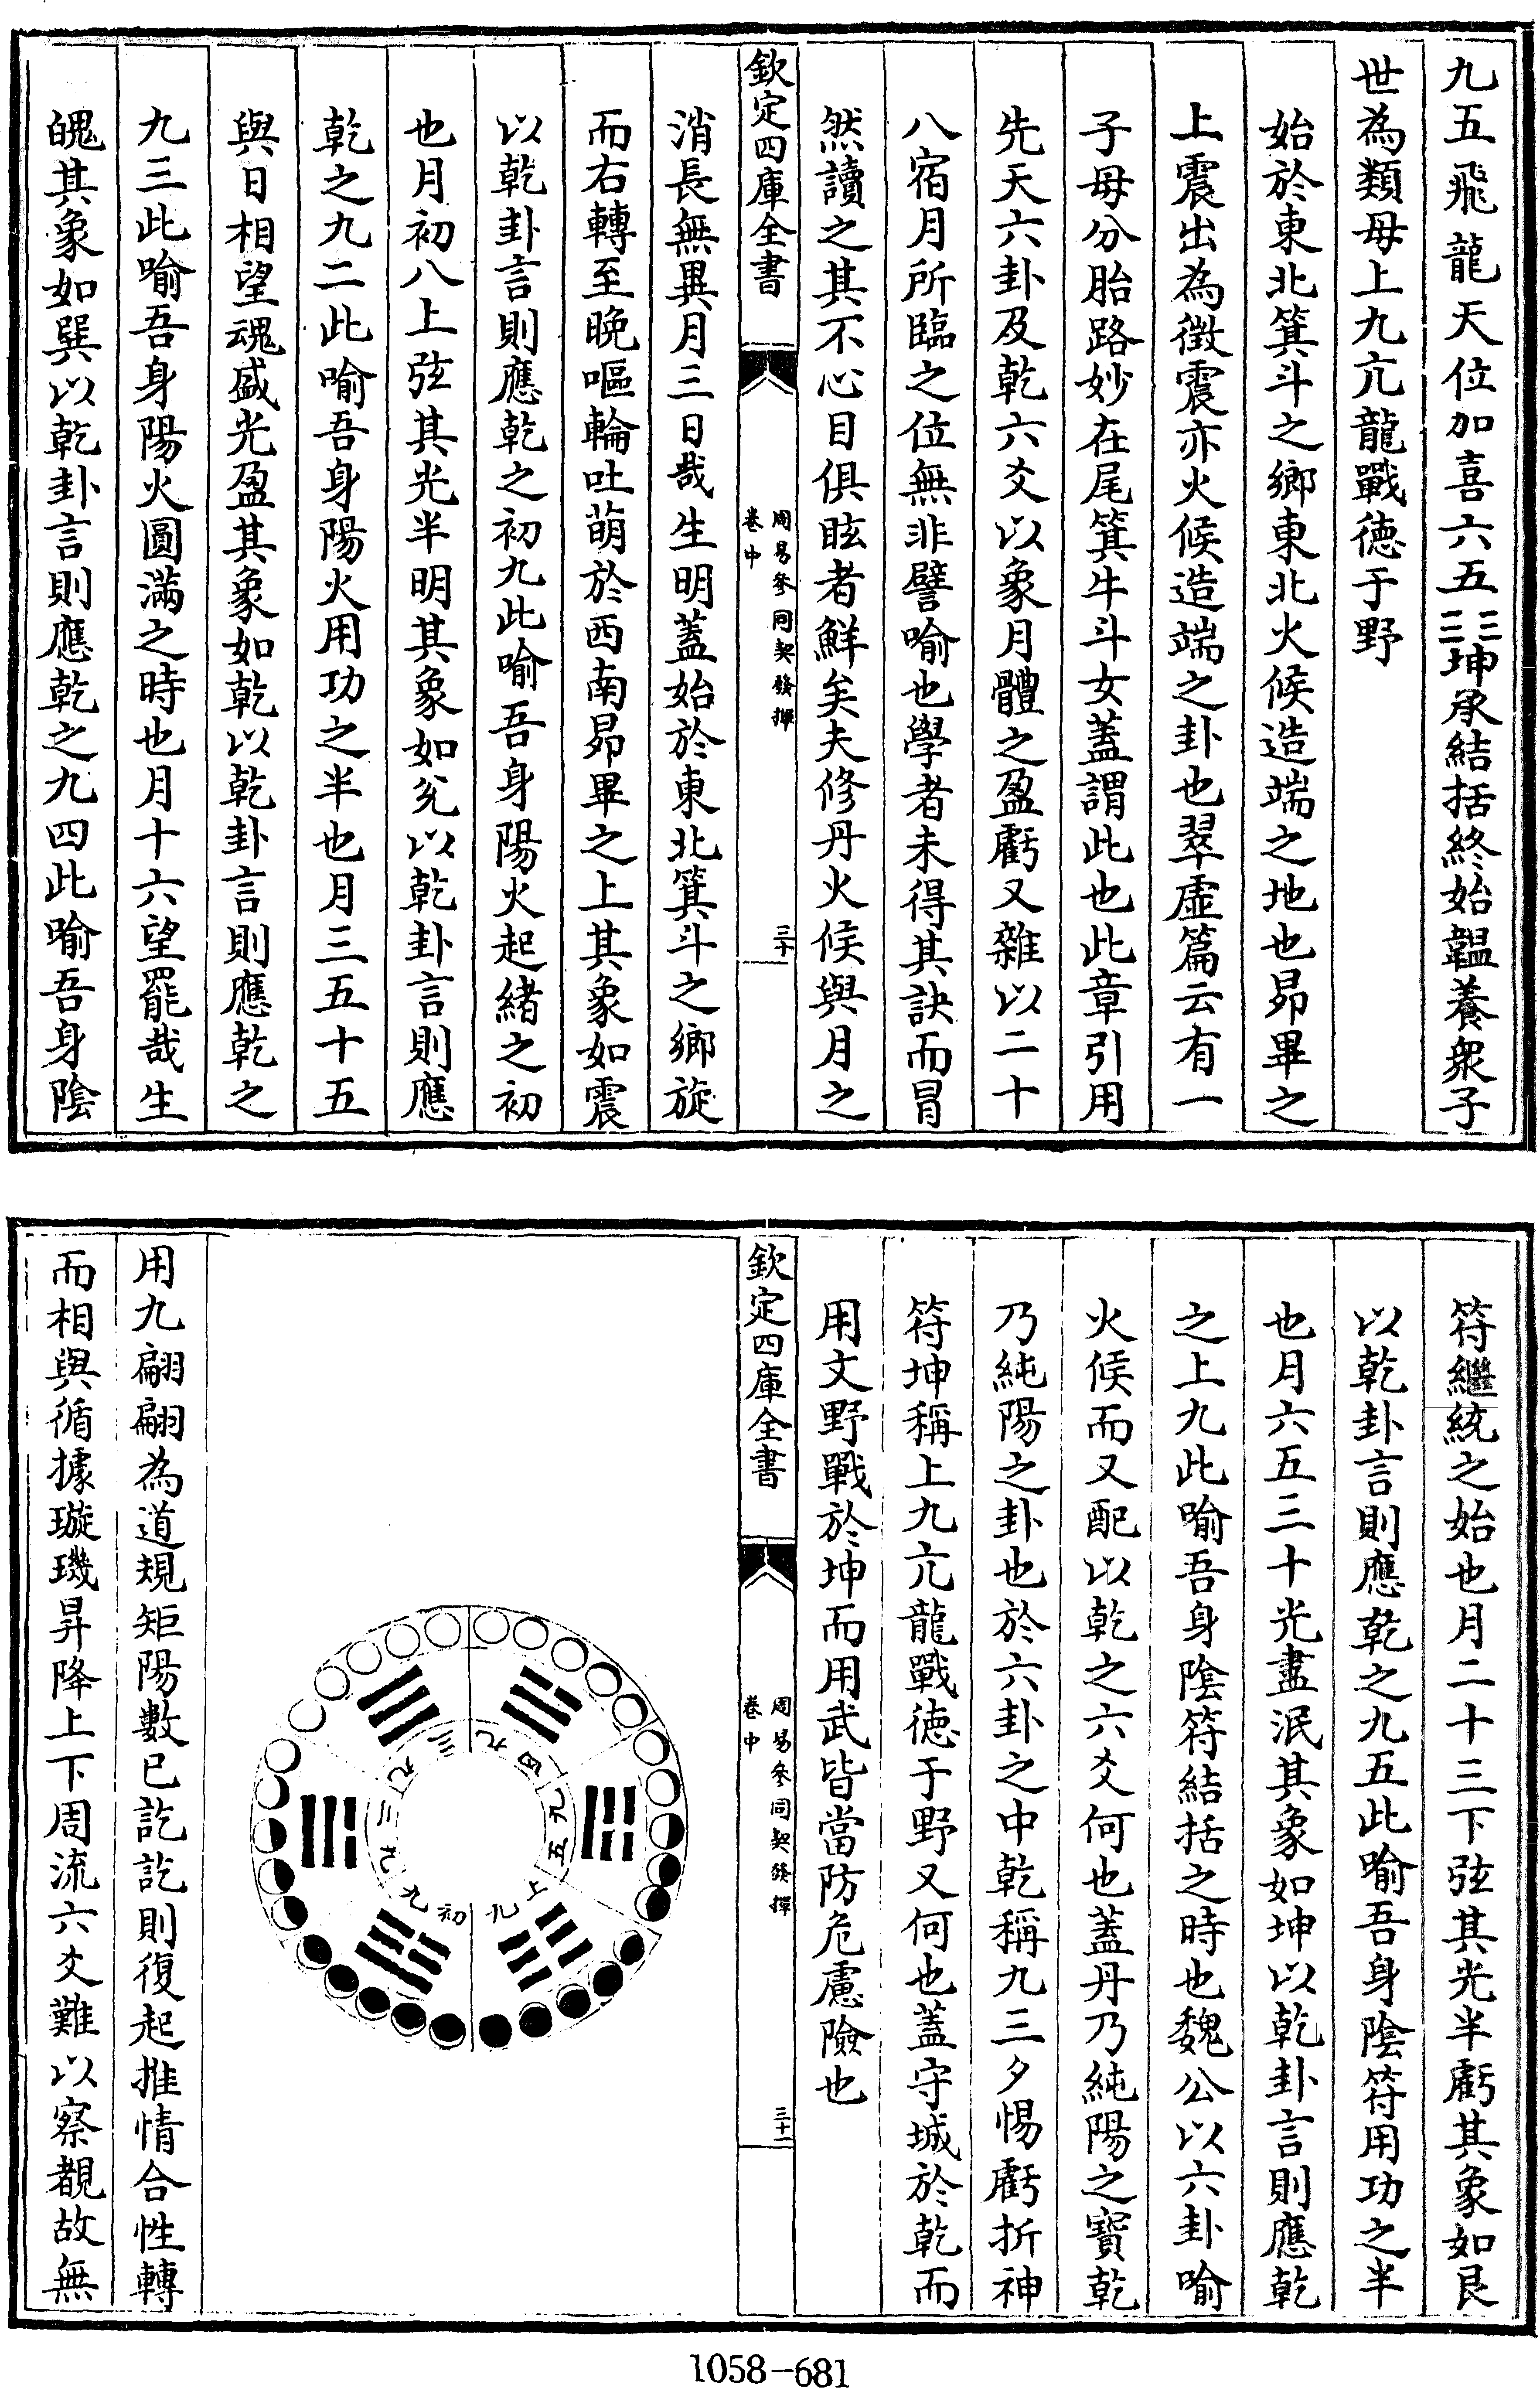 九五飛龍天位加喜六五☷☷坤承結括終始韞養衆子
世為類母上九亢龍戰徳于野
始於東北箕斗之鄉東北火候造端之地也昴畢之
上震出為徵震亦火候造端之卦也翠虛篇云有一
子母分胎路妙在尾箕牛斗女蓋謂此也此章引用
先天六卦及乾六爻以象月體之盈虧又雜以二十
八宿月所臨之位無非譬喻也學者未得其訣而冒
然讀之其不心目俱眩者鮮矣夫修丹火候與月之
欽定四庫全書
周易參同契發揮
卷中
三十
消長無異月三日哉生明蓋始於東北箕斗之鄉旋
而右轉至晚嘔輪吐萌於西南昴畢之上其象如震
以乾卦言則應乾之初九此喻吾身陽火起緒之初
也月初八上弦其光半明其象如兊以乾卦言則應
乾之九二此喻吾身陽火用功之半也月三五十五
與日相望魂盛光盈其象如乾以乾卦言則應乾之
九三此喻吾身陽火圓滿之時也月十六望罷哉生
魄其象如巽以乾卦言則應乾之九四此喻吾身陰
符繼統之始也月二十三下弦其光半虧其象如艮
以乾卦言則應乾之九五此喻吾身陰符用功之半
也月六五三十光盡泯其象如坤以乾卦言則應乾
之上九此喻吾身陰符結括之時也魏公以六卦喻
火候而又配以乾之六爻何也蓋丹乃純陽之寶乾
乃純陽之卦也於六卦之中乾稱九三夕惕虧折神
符坤稱上九亢龍戰徳于野又何也蓋守城於乾而
用文野戰於坤而用武皆當防危慮險也
欽定四庫全書
周易參同契發揮
卷中
三十一
初九
九二
九三
九四
九五
上九
用九翩翩為道規矩陽數已訖訖則復起推情合性轉
而相與循據璇璣昇降上下周流六爻難以察覩故無
1058-681